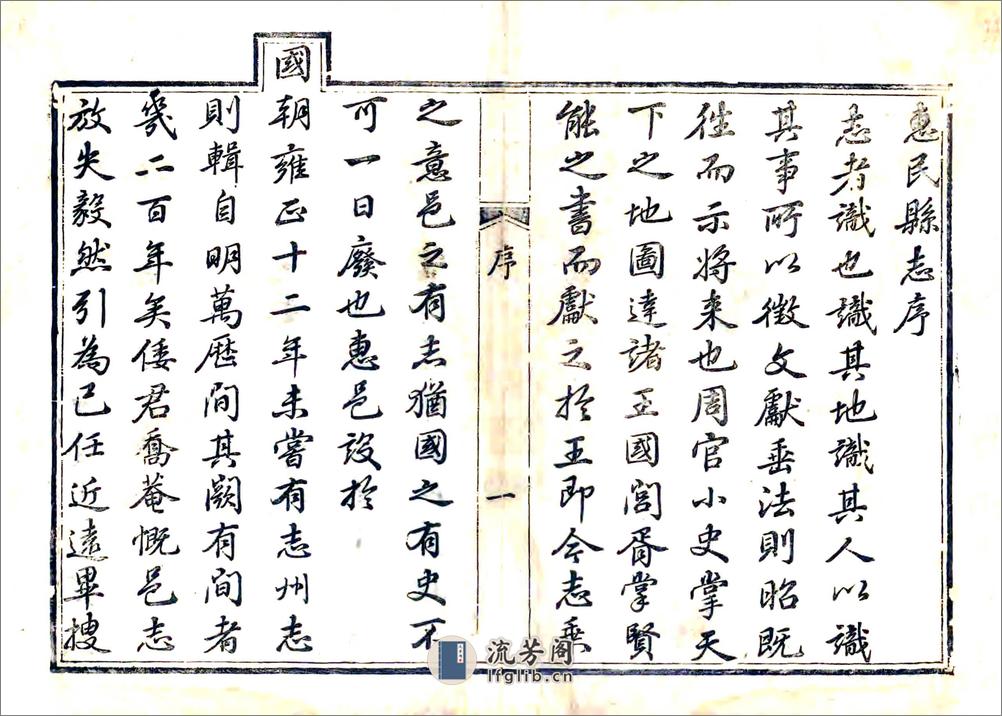 惠民縣志序
志者識也識其地識其人以識
其事所以徵文獻垂法則昭既
往而示將来也周官小史掌天
下之地圖達諸王國閭胥掌賢
能之書而獻之於王即今志乗
序
一
之意邑之有志猶國之有史不
可一日廢也惠邑設於
國
朝雍正十二年未嘗有志州志
則輯自明萬歴間其闕有間者
幾二百年矣倭君喬菴慨邑志
放失毅然引為已任近遠畢搜
流芳阁
lfglib.cn